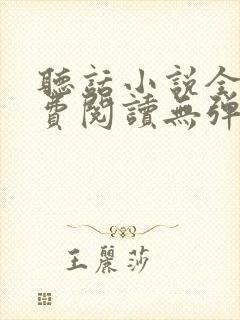 聽話小說全
費閱讀無彈
王麗莎